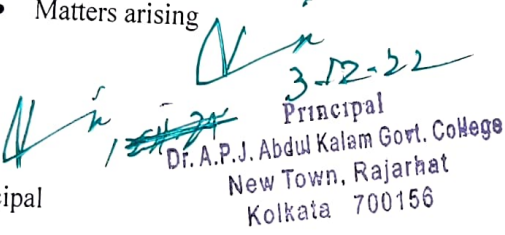 • Matters arising
3-12-22
Principal
Dr. A.P.J. Abdul Kalam Govt. College
New Town, Rajarhat
Kolkata 700156
cipal